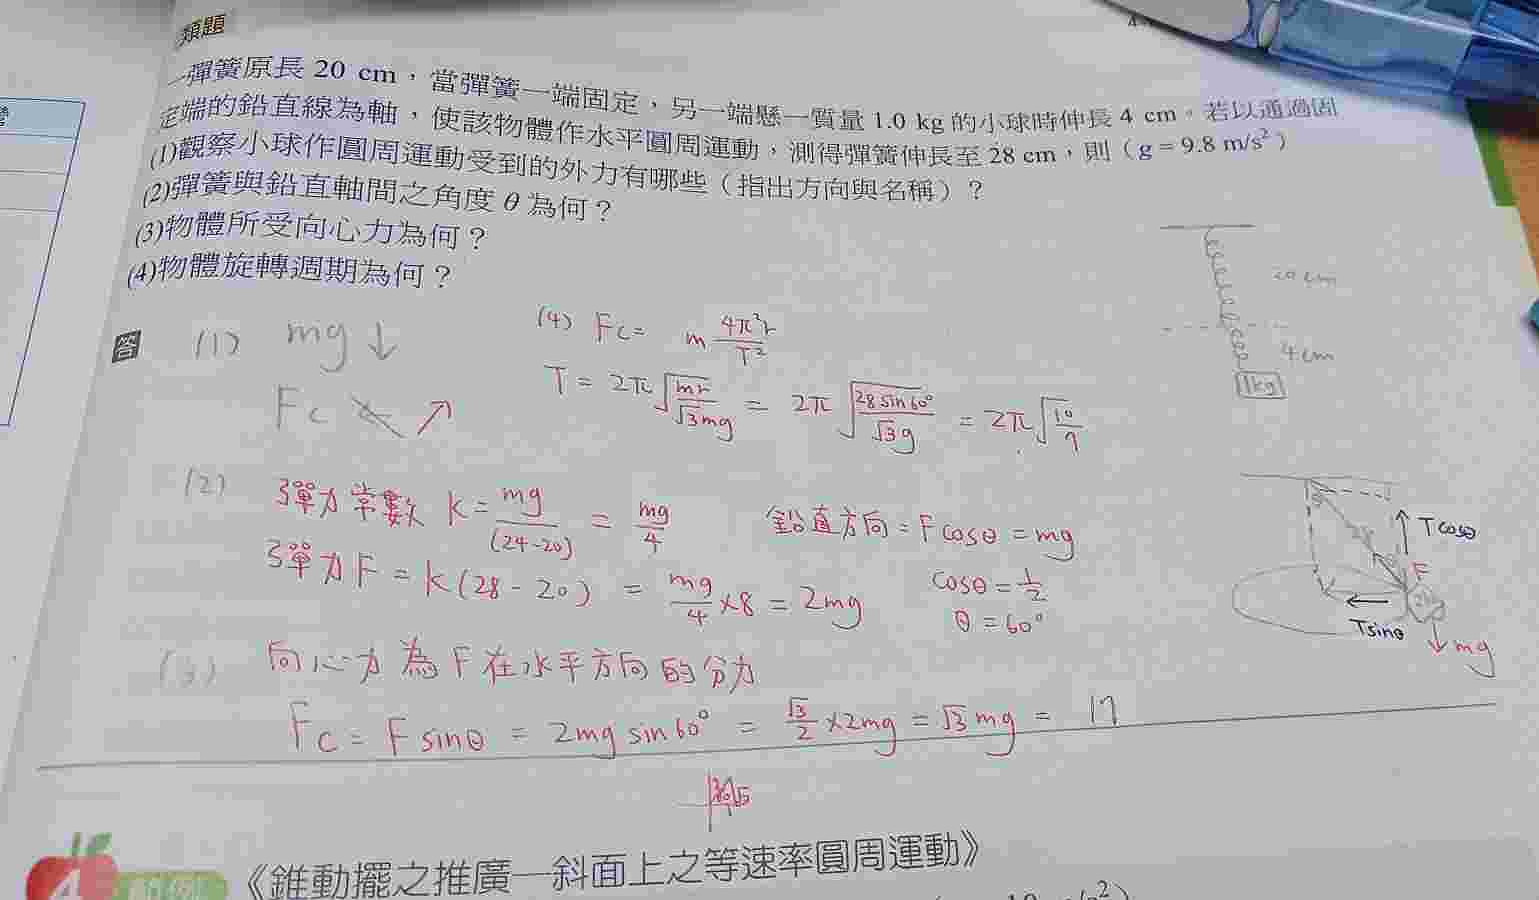 類題
一彈簧原長 20 cm,當彈簧一端固定,另一端懸一質量 1.0 kg 的小球時伸長 4 cm。若以通過固
定端的鉛直線為軸,使該物體作水平圓周運動,測得彈簧伸長至 28 cm,則(g = 9.8 m/s²)
(1)觀察小球作圓周運動受到的外力有哪些(指出方向與名稱)?
(2)彈簧與鉛直軸間之角度 θ 為何?
(3)物體所受向心力為何?
(4)物體旋轉週期為何?
20 cm
4 cm
1kg
答 (1) mg ↓
Fc ↗
(4) Fc = m 4π²r/T²
T = 2π√(mr/√3mg) = 2π√(28 sin60°/√3g) = 2π√(10/7)
(2) 彈力常數 k = mg/(24-20) = mg/4
彈力 F = k(28-20) = mg/4 ×8 = 2mg
鉛直方向 = F cosθ = mg
cosθ = 1/2
θ = 60°
Tcosθ
F
Tsinθ
mg
(3) 向心力為 F 在水平方向的分力
Fc = F sinθ = 2mg sin60° = √3/2 ×2mg = √3 mg = 17
4 範例 《錐動擺之推廣—斜面上之等速率圓周運動》